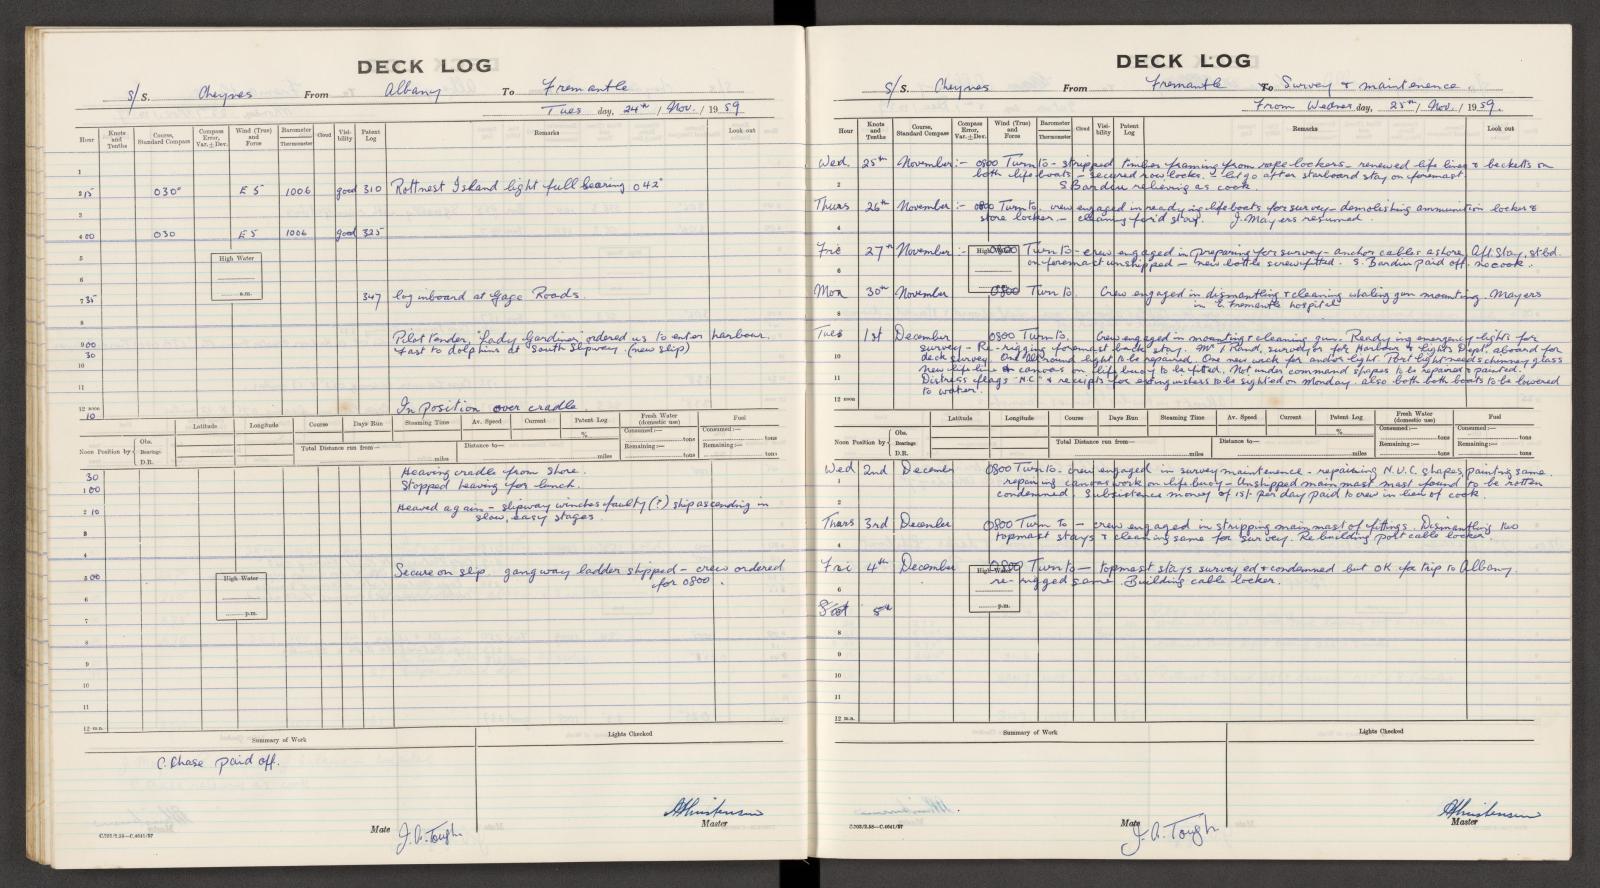 DECK LOG
S/S. Cheynes From Albany To Fremantle
Tues day, 24th / Nov. / 1959
Hour Knots and Tenths Course, Standard Compass Compass Error, Var. ± Dev. Wind (True) and Force Barometer Thermometer Cloud Visibility Patent Log Remarks Look out
1
2 15 030° E 5 1006 good 310 Rottnest Island light full bearing 042°
2
4 00 030 E 5 1006 good 325
5 High Water
6 a.m.
7 35 347 log inboard at Gage Roads.
8
9 00 Pilot tender, "Lady Gardiner" ordered us to enter harbour.
30 fast to dolphins at South Slipway (new slip)
10
11
12 noon In position over cradle
10
Latitude Longitude Course Days Run Steaming Time Av. Speed Current Patent Log Fresh Water (domestic use) Fuel
% Consumed:— tons tons
Noon Position by Obs. Bearings D.R. Total Distance run from— miles Distance to— miles Remaining:— tons Remaining:— tons
30 Heaving cradle from shore.
1 00 Stopped heaving for lunch.
2 10 Heaved again – slipway winches faulty (?) ship ascending in
slow, easy stages.
3
4
5 00 Secure on slip gangway ladder shipped – crew ordered
for 0800.
High Water
6
p.m.
7
8
9
10
11
12 m.n.
Summary of Work Lights Checked
C. Chase paid off.
Mate J. A. Tough
Master
C.702/2.58—C.4641/57
DECK LOG
S/S. Cheynes From Fremantle To Survey & maintenence.
From Wednes day, 25th / Nov. / 1959.
Hour Knots and Tenths Course, Standard Compass Compass Error, Var. ± Dev. Wind (True) and Force Barometer Thermometer Cloud Visibility Patent Log Remarks Look out
Wed. 25th November:- 0800 Turn to – stripped timber framing from rope lockers – renewed life lines & becketts on
both lifeboats – secured row locks. – let go after starboard stay on foremast.
2 S. Bardin relieving as cook.
Thurs 26th November:- 0800 Turn to. crew engaged in readying lifeboats for survey – demolishing ammunition locker &
store locker – cleaning for'd stay. J. Mayers resumed.
4
Fri 27th November:- 0800 Turn to – crew engaged in preparing for survey – anchor cables ashore, Aft. Stay, stbd.
on foremast unshipped – new bottle screw fitted. S. Bardin paid off. no cook.
High Water
6
Mon 30th November 0800 Turn to. Crew engaged in dismantling & cleaning whaling gun mounting. Mayers
in Fremantle hospital
8
Tues 1st December 0800 Turn to. Crew engaged in mounting & cleaning gun. Readying emergency lights for
survey – Re-rigging foremast back stay. Mr. Brand, surveyor for Harbour & Lights Dept. aboard for
10 deck survey. One all round light to be repaired. One new wick for anchor light. Port light needs chimney glass
New life line & canvas on life buoy to be fitted. Not under command shapes to be repaired & painted.
11 Distress flags "N.C." & receipts for extinguishers to be sighted on Monday. also both both boats to be lowered
to water.
12 noon
Latitude Longitude Course Days Run Steaming Time Av. Speed Current Patent Log Fresh Water (domestic use) Fuel
% Consumed:— tons tons
Noon Position by Obs. Bearings D.R. Total Distance run from— miles Distance to— miles Remaining:— tons Remaining:— tons
Wed 2nd December 0800 Turn to – crew engaged in survey maintenence – repairing N.U.C. shapes, painting same.
1 repairing canvas work on life buoy – Unshipped main mast mast found to be rotten
2 condemned. Subsistence money of 15/- per day paid to crew in lieu of cook.
Thurs 3rd December 0800 Turn to – crew engaged in stripping main mast of fittings. Dismantling two
topmast stays & cleaning same for survey. Re building port cable locker.
4
Fri 4th December 0800 Turn to – topmast stays surveyed & condemned but OK for trip to Albany.
re-rigged same. Building cable locker.
High Water
6
Sat 5th
p.m.
8
9
10
11
12 m.n.
Summary of Work Lights Checked
Mate J. A. Tough
Master
C.702/2.58—C.4641/57